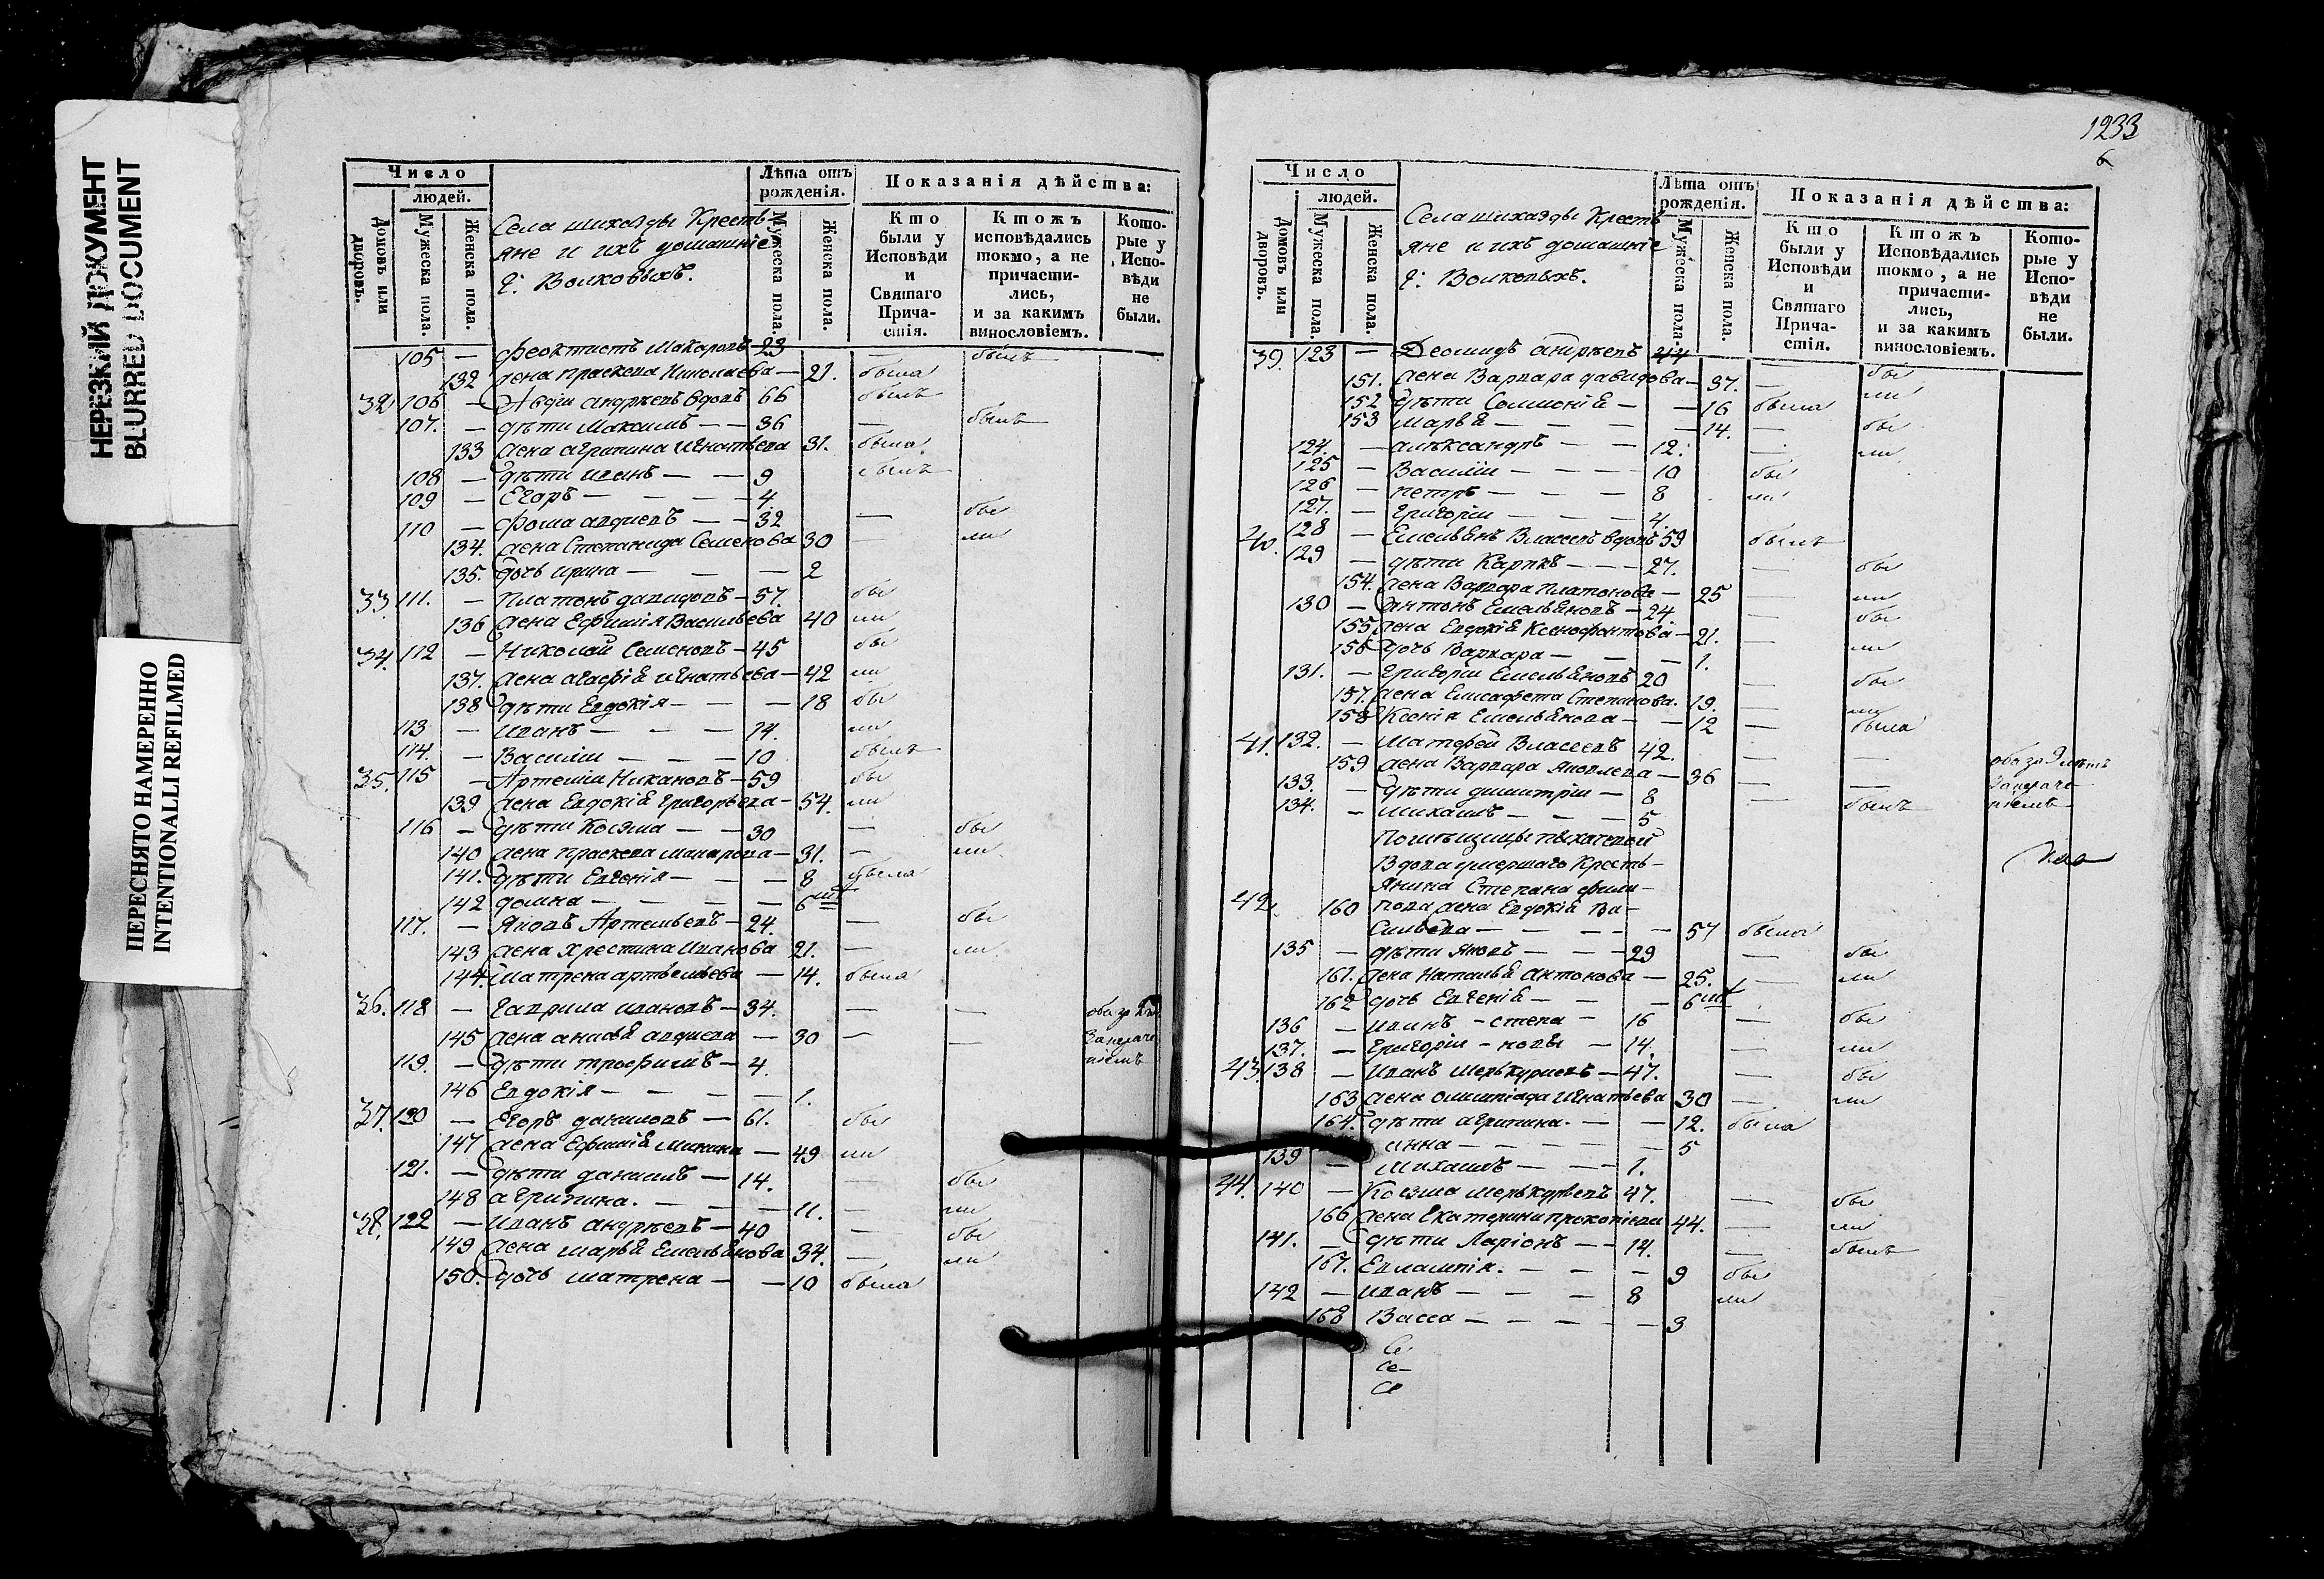 НЕРЕЗКИЙ ДОКУМЕНТ
BLURRED DOCUMENT
ПЕРЕСНЯТО НАМЕРЕННО
INTENTIONALLI REFILMED
Число
людей.
Домовъ или дворовъ.
Мужеска пола.
Женска пола.
Села шихазды Кресть-
яне и ихъ домашніе
Г: Волковыхъ.
Лѣта отъ рожденія.
Мужеска пола.
Женска пола.
Показанія дѣйства:
Кто были у Исповѣди и Святаго Прича-стія.
Ктожъ исповѣдались токмо, а не причасти-лись, и за какимъ винословіемъ.
Кото-рые у Испо-вѣди не были.
105 — Феоктистъ Макаровъ — 23 — былъ
132 жена праскева Николаева — 21. была
32 106 — Авдѣи андреевъ вдовъ 66 былъ
107. — дѣти Максимъ — — 36 — былъ
133 жена агрипина игнатьева 31. была
108 — дѣти иванъ — — 9 былъ
109 — Егоръ — — — 4.
110 — фома авдиевъ — — 32 — бы
134. жена Степанида Семенова 30 — ли
135. дочь ирина — — — 2
33 111. — Платонъ давидовъ — 57. бы
136 жена Ефимія Васильева 40 ли
34. 112 — Николай Семеновъ — 45 бы
137. жена агафія игнатьева — 42 ли
138 дѣти Евдокія — — — 18 бы
113 — иванъ — — — 14. ли
114. — Василіи — — — 10 былъ
35. 115 — Артеміи Никановъ — 59 бы
139 жена Евдокія григорьева — 54. ли
116 — дѣти Козма — — 30 — бы
140 жена праскева макарова — 31. — ли
141. дѣти Евгенія — — — 8 была
142 домна — — — — 6 м
117. — Яковъ Артемьевъ — 24. — бы
143 жена христина иванова 21. — ли
144. матрена артемьева — 14. была
36. 118 — гаврила ивановъ — 34. — — оба за
145 жена анисья авдиева — 30 — — Запераче
119. — дѣти трофимъ — 4. ніемъ
146 Евдокія — — — — 1.
37. 120 — Егоръ даниловъ — 61. бы
147 жена Ефимія Минина — 49 ли
121. — дѣти данилъ — 14. — бы
148 агрипина. — — — 11. — ли
38. 122 — иванъ андреевъ — 40 — бы
149 жена марья Емельянова 34. — ли
150. дочь матрена — — 10 была
1233
6
Число
людей.
Домовъ или дворовъ.
Мужеска пола.
Женска пола.
Села шихазды Кресть
яне и ихъ домашніе
Г: Волковыхъ.
Лѣта отъ рожденія.
Мужеска пола.
Женска пола.
Показанія дѣйства:
Кто были у Исповѣди и Святаго Прича-стія.
Ктожъ Исповѣдались токмо, а не причасти-лись, и за какимъ винословіемъ.
Кото-рые у Испо-вѣди не были.
39. 123 — Деомидъ андреевъ 44 — бы
151. жена Варвара давидова — 37. — ли
152 дѣти Соломонія — — 16 была
153 марья — — — — 14. — бы
124. — алѣксандръ — — 12. — ли
125 — Василіи — — — 10 бы
126 — петръ — — — 8 ли
127. — григоріи — — — 4.
40. 128 — Емельянъ Власовъ вдовъ 59 былъ
129 — дѣти Карпъ — — — 27. — бы
154. жена Варвара платонова — 25 — ли
130 — антонъ Емельяновъ — 24 — бы
155 жена Евдокія Ксенофонтова — 21. — ли
156 дочь Варвара — — — 1.
131. — григоріи Емельяновъ 20 — бы
157. жена Елисафета Степанова. 19. — ли
158 Ксенія Емельянова — — 12 — была
41. 132. — Матфей Власовъ 42. — —
159 жена Варвара яковлева — 36 — — оба за лѣтъ
133. — дѣти димитріи — 8 — — Запераче
134. — михаилъ — — — 5 былъ ніемъ
Помѣщицы пыхатской
Вдова умершаго Кресть-
янина Степана фили-
42. 160 пова жена Евдокія Ва-
сильева — — — — — 57 была
135 — дѣти Яковъ — — — 29 — бы
161. жена Наталья антонова — 25. — ли
162 дочь Евгенія — — — 6 м
136 — иванъ — степа — 16 — бы
137. — григоріи — новы — 14. — ли
43. 138 — иванъ меркурьевъ — 47. — бы
163 жена олимпіада игнатьева 30 — ли
164. дѣти агрипина. — — 12. была
анна — — — — 5
139 — михаилъ — — — 1.
44. 140 — Козма меркурьевъ 47. — бы
166 жена Екатерина прокопіева 44. — ли
141. — дѣти Ларіонъ — — 14. — былъ
167. Евлампія. — — — 9 бы
142 — иванъ — — — 8 ли
168 Васса — — — — — 3
Се
Се-
Се